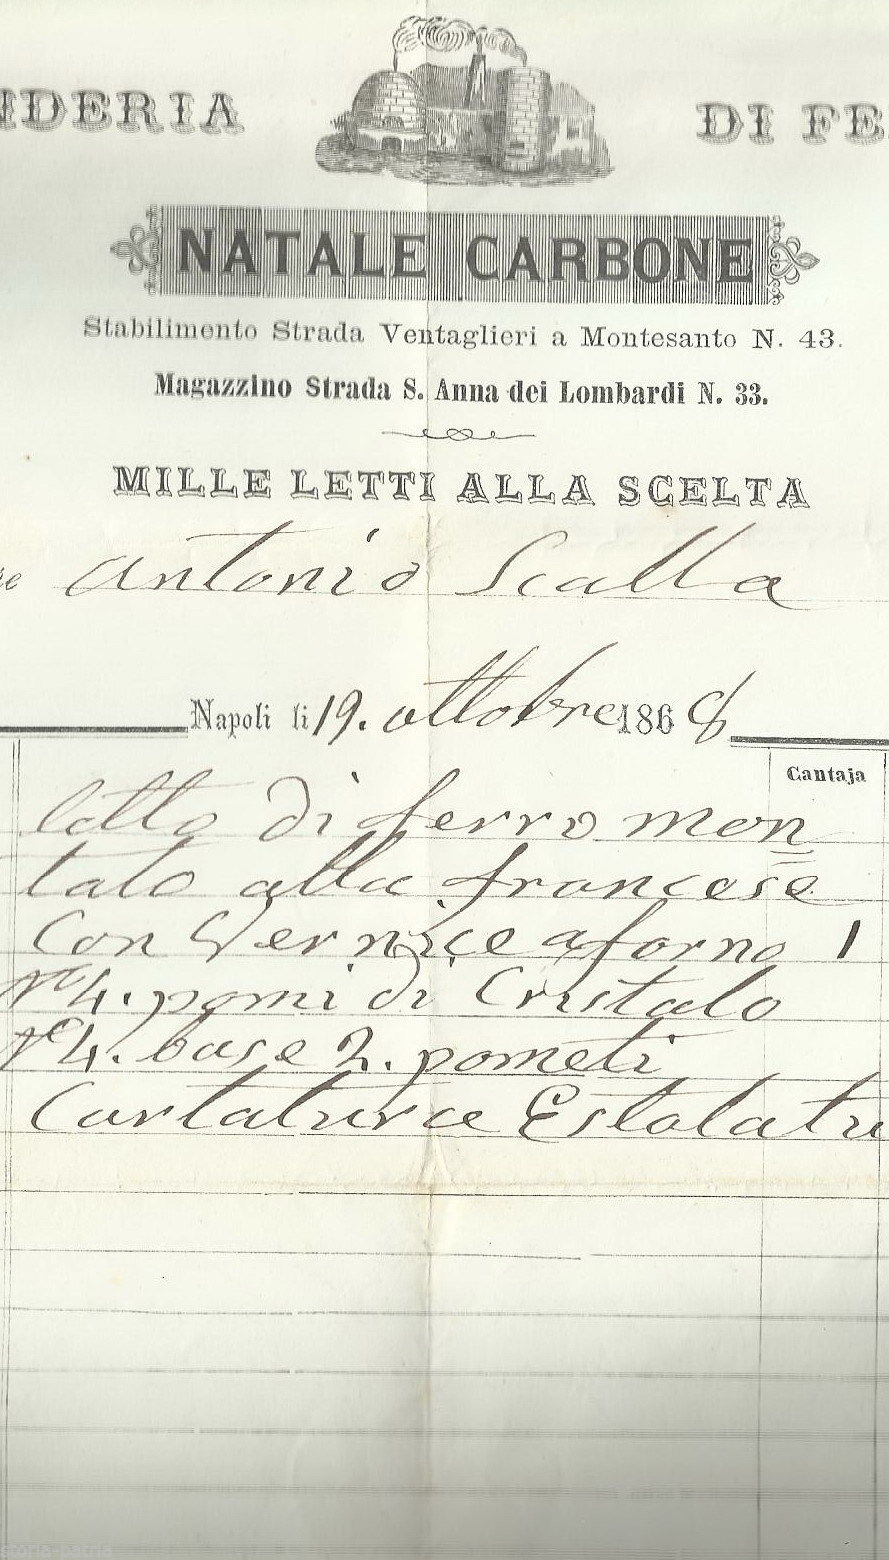 NDERIA DI FE
NATALE CARBONE
Stabilimento Strada Ventaglieri a Montesanto N. 43.
Magazzino Strada S. Anna dei Lombardi N. 33.
MILLE LETTI ALLA SCELTA
re Antonio Scalla
Napoli li 19. ottobre 1868
Cantaja
letto di ferro mon
tato alla francese
Con Vernice a forno 1
N° 4. pomi di Cristalo
N° 4. base 2. pometi